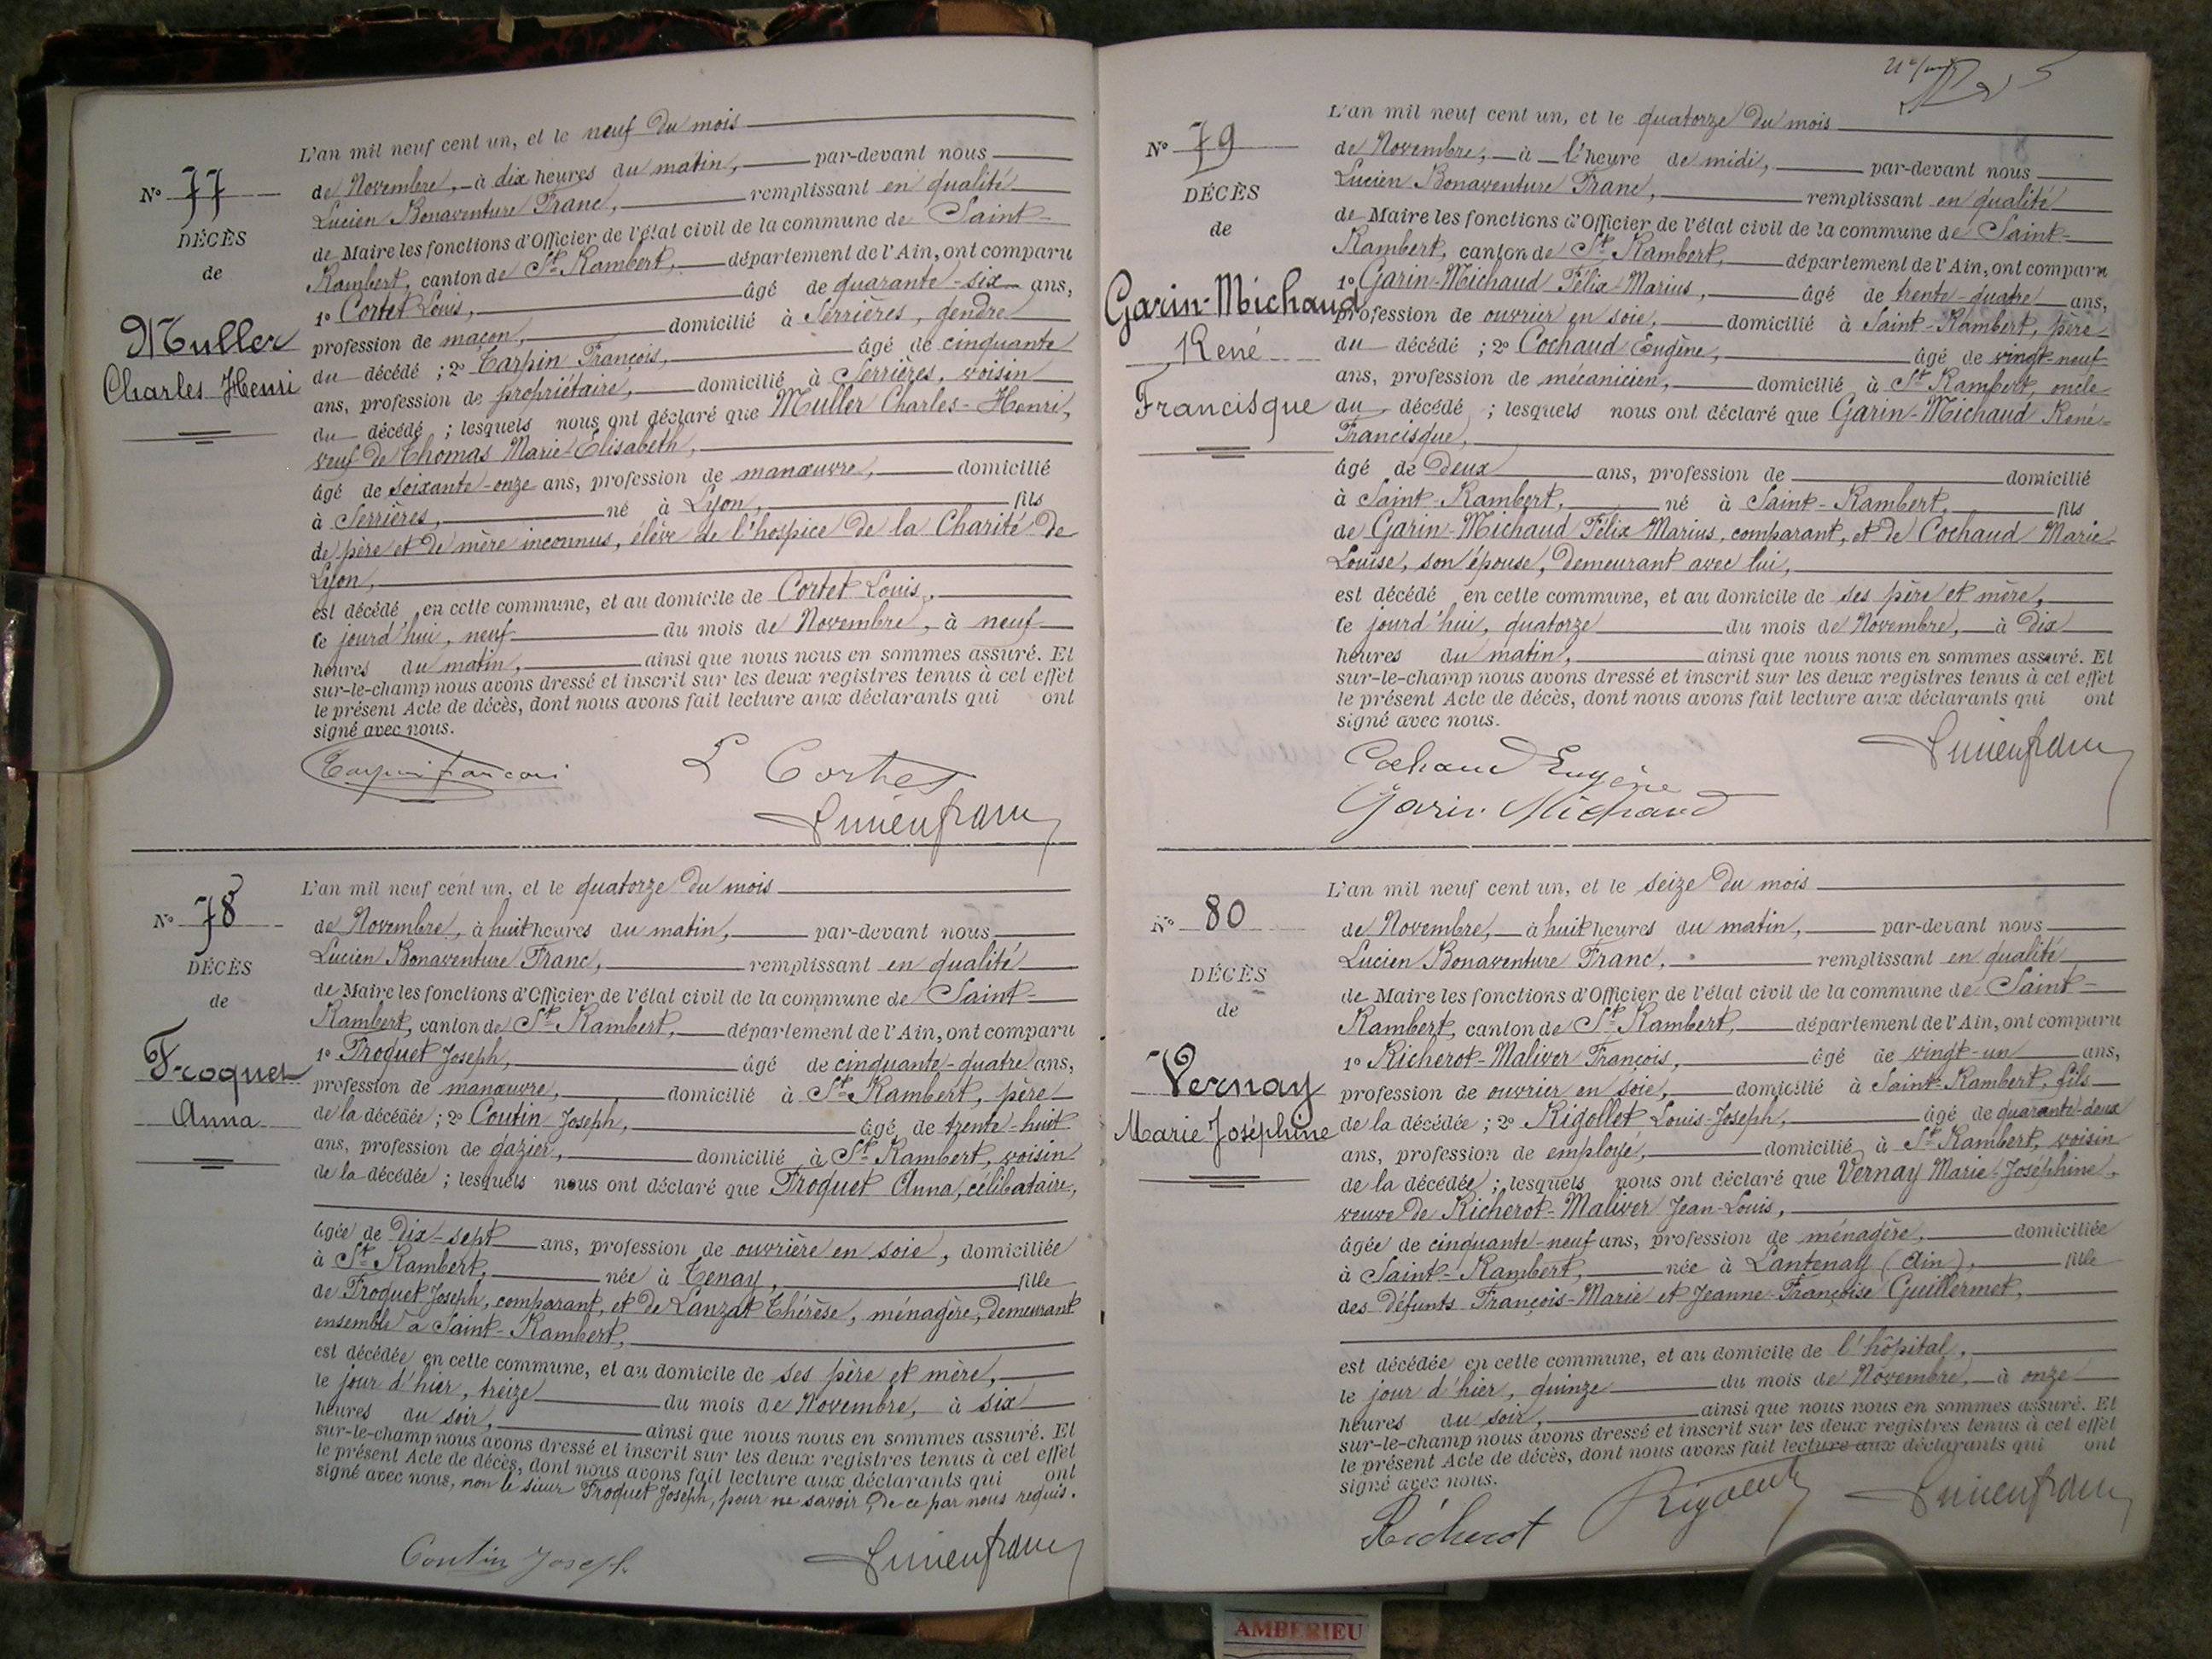 L'an mil neuf cent un, et le neuf du mois
N° 77
de Novembre, à dix heures du matin, par-devant nous
Lucien Bonaventure Franc, remplissant en qualité
DÉCÈS
de Maire les fonctions d'Officier de l'état civil de la commune de Saint-
de
Rambert, canton de St. Rambert, département de l'Ain, ont comparu
1° Cortet Louis, âgé de quarante-six ans,
Muller
profession de maçon, domicilié à Serrières, gendre
Charles Henri
du décédé ; 2° Tarpin François, âgé de cinquante
ans, profession de propriétaire, domicilié à Serrières, voisin
du décédé ; lesquels nous ont déclaré que Muller Charles-Henri,
veuf de Thomas Marie-Elisabeth,
âgé de soixante-onze ans, profession de manœuvre, domicilié
à Serrières, né à Lyon, fils
de père et de mère inconnus, élève de l'hospice de la Charité de
Lyon,
est décédé en cette commune, et au domicile de Cortet Louis,
ce jourd'hui, neuf du mois de Novembre, à neuf
heures du matin, ainsi que nous nous en sommes assuré. Et
sur-le-champ nous avons dressé et inscrit sur les deux registres tenus à cet effet
le présent Acte de décès, dont nous avons fait lecture aux déclarants qui ont
signé avec nous.
L Cortet
L'an mil neuf cent un, et le quatorze du mois
N° 78
de Novembre, à huit heures du matin, par-devant nous
Lucien Bonaventure Franc, remplissant en qualité
DÉCÈS
de Maire les fonctions d'Officier de l'état civil de la commune de Saint-
de
Rambert, canton de St. Rambert, département de l'Ain, ont comparu
Froquet
1° Froquet Joseph, âgé de cinquante-quatre ans,
profession de manœuvre, domicilié à St. Rambert, père
Anna
de la décédée ; 2° Coutin Joseph, âgé de trente-huit
ans, profession de gazier, domicilié à St. Rambert, voisin
de la décédée ; lesquels nous ont déclaré que Froquet Anna, célibataire,
âgée de dix-sept ans, profession de ouvrière en soie, domiciliée
à St. Rambert, née à Tenay, fille
de Froquet Joseph, comparant, et de Lanzat Thérèse, ménagère, demeurant
ensemble à Saint-Rambert,
est décédée en cette commune, et au domicile de ses père et mère,
le jour d'hier, treize du mois de Novembre, à six
heures du soir, ainsi que nous nous en sommes assuré. Et
sur-le-champ nous avons dressé et inscrit sur les deux registres tenus à cet effet
le présent Acte de décès, dont nous avons fait lecture aux déclarants qui ont
signé avec nous, non le sieur Froquet Joseph, pour ne savoir, de ce par nous requis.
Coutin Joseph
L'an mil neuf cent un, et le quatorze du mois
N° 79
de Novembre, à l'heure de midi, par-devant nous
Lucien Bonaventure Franc, remplissant en qualité
DÉCÈS
de Maire les fonctions d'Officier de l'état civil de la commune de Saint-
de
Rambert, canton de St. Rambert, département de l'Ain, ont comparu
1° Garin-Michaud Félix-Marius, âgé de trente-quatre ans,
Garin-Michaud
profession de ouvrier en soie, domicilié à Saint-Rambert, père
René
du décédé ; 2° Cochaud Eugène, âgé de vingt-neuf
ans, profession de mécanicien, domicilié à St. Rambert, oncle
Francisque
du décédé ; lesquels nous ont déclaré que Garin-Michaud René-
Francisque,
âgé de deux ans, profession de domicilié
à Saint-Rambert, né à Saint-Rambert, fils
de Garin-Michaud Félix Marius, comparant, et de Cochaud Marie-
Louise, son épouse, demeurant avec lui,
est décédé en cette commune, et au domicile de ses père et mère,
ce jourd'hui, quatorze du mois de Novembre, à dix
heures du matin, ainsi que nous nous en sommes assuré. Et
sur-le-champ nous avons dressé et inscrit sur les deux registres tenus à cet effet
le présent Acte de décès, dont nous avons fait lecture aux déclarants qui ont
signé avec nous.
Cochaud Eugène
Garin Michaud
L'an mil neuf cent un, et le seize du mois
N° 80
de Novembre, à huit heures du matin, par-devant nous
Lucien Bonaventure Franc, remplissant en qualité
DÉCÈS
de Maire les fonctions d'Officier de l'état civil de la commune de Saint-
de
Rambert, canton de St. Rambert, département de l'Ain, ont comparu
1° Richerot-Maliver François, âgé de vingt-un ans,
Vernay
profession de ouvrier en soie, domicilié à Saint-Rambert, fils
Marie Joséphine
de la décédée ; 2° Rigollet Louis-Joseph, âgé de quarante-deux
ans, profession de employé, domicilié à St. Rambert, voisin
de la décédée ; lesquels nous ont déclaré que Vernay Marie-Joséphine,
veuve de Richerot-Maliver Jean-Louis,
âgée de cinquante-neuf ans, profession de ménagère, domiciliée
à Saint-Rambert, née à Lantenay (Ain), fille
des défunts François-Marie et Jeanne-Françoise Guillermet,
est décédée en cette commune, et au domicile de l'hôpital,
le jour d'hier, quinze du mois de Novembre, à onze
heures du soir, ainsi que nous nous en sommes assuré. Et
sur-le-champ nous avons dressé et inscrit sur les deux registres tenus à cet effet
le présent Acte de décès, dont nous avons fait lecture aux déclarants qui ont
signé avec nous.
Richerot
AMBERIEU